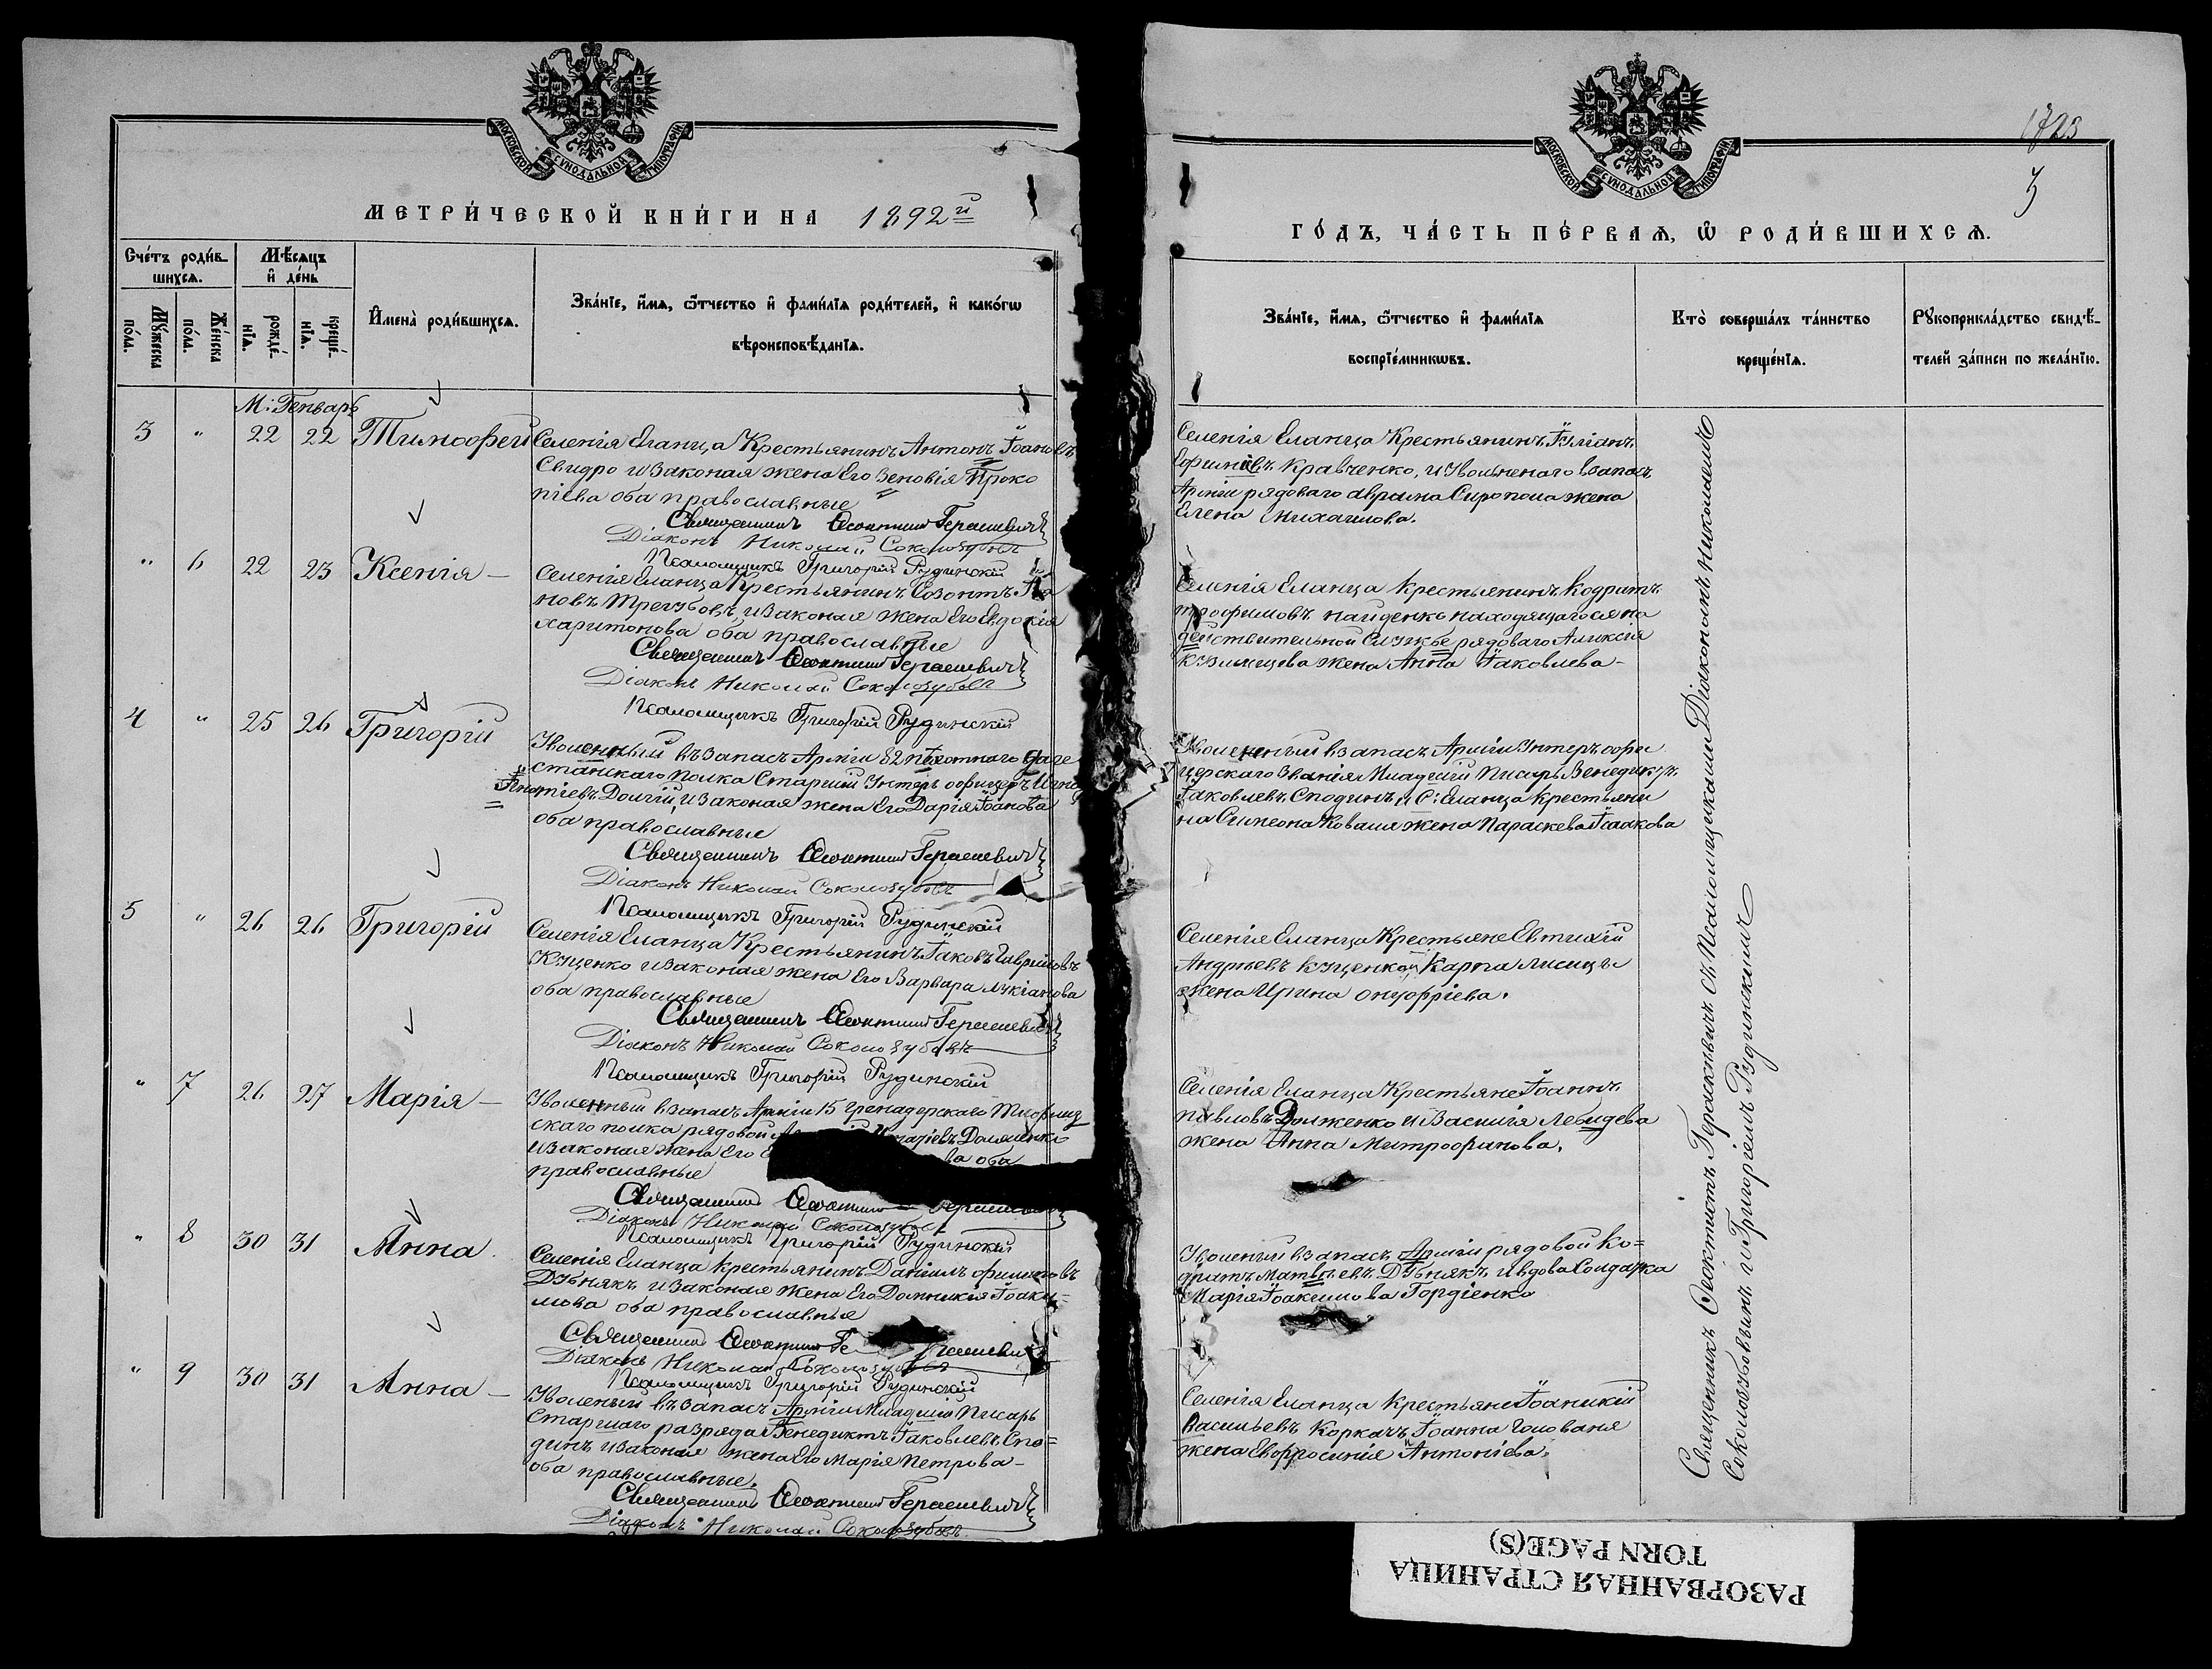 МОСКОВСКОЙ СУНОДАЛЬНОЙ ТИПОГРАФІИ
МЕТРИ́ЧЕСКОЙ КНИ́ГИ НА 1892й
Сче́тъ роди́в-
шихсѧ.
Мѣ́сѧцъ
и҆ де́нь
Мꙋ́жеска
по́ла.
Же́нска
по́ла.
рожде́-
нїѧ.
креще́-
нїѧ.
И҆мена̀ роди́вшихсѧ.
Зва́нїе, и҆́мѧ, ѻ҆́тчество и҆ фами́лїѧ роди́телей, и҆ како́гѡ
вѣроисповѣ́данїѧ.
М: Генварь
3 " 22 22 Тимофей
Селенія Еланца Крестьянинъ Антонъ Іоановъ
Свидро и законая жена Его Зеновія Проко
піева оба православные
Священникъ Феоктистъ Герасневичъ
Діаконъ Николай Соколозубовъ
Псаломщикъ Григорій Рудинскій
" 6 22 23 Ксенія
Селенія Еланца Крестьянинъ Созонтъ
новъ Трегубовъ, и законая жена Его Евдокія
харитонова оба православные
Священникъ Феоктистъ Герасневичъ
Діаконъ Николай Соколозубовъ
Псаломщикъ Григорій Рудинскій
4 " 25 26 Григорій
Уволенный въ запасъ Арміи 82 пѣхотнаго Даге
станскаго полка Старшій Унтеръ офицеръ
Долгій, и законая жена Его Дарія Іоанова
оба православные
Священникъ Феоктистъ Герасневичъ
Діаконъ Николай Соколозубовъ
Псаломщикъ Григорій Рудинскій
5 " 26 26 Григорій
Селенія Еланца Крестьянинъ Іаковъ Гавриловъ
Куценко и законая жена Его Варвара Лукіанова
оба православные
Священникъ Феоктистъ Герасневичъ
Діаконъ Николай Соколозубовъ
Псаломщикъ Григорій Рудинскій
" 7 26 27 Марія
Уволенный въ запасъ Арміи 15 Гренадерскаго Тифлиз
скаго полка рядовой Долженко
и законая жена Его ва оба
православные
Священникъ Феоктистъ
Діаконъ Николай Соколозубовъ
Псаломщикъ Григорій Рудинскій
" 8 30 31 Анна
Селенія Еланца крестьянинъ Даніилъ филиповъ
Дубнякъ и законая жена Его Домникія Іоаки=
мова оба православные
Священникъ Феоктистъ
Діаконъ Николай Соколозубовъ
Псаломщикъ Григорій Рудинскій
" 9 30 31 Анна
Уволеный въ запасъ Арміи Младшій Писарь
Старшаго разряда Венедиктъ Іаковлевъ Спо=
динъ и законая жена Его Марія Петрова
оба православные.
Священникъ Феоктистъ Герасневичъ
Діаконъ Николай Соколозубовъ
МОСКОВСКОЙ СУНОДАЛЬНОЙ ТИПОГРАФІИ
3
ГО́ДЪ, ЧА́СТЬ ПЕ́РВАѦ, Ѡ҆ РОДИ́ВШИХСѦ.
Зва́нїе, и҆́мѧ, ѻ҆́тчество и҆ фами́лїѧ
воспрїе́мникѡвъ.
Кто̀ соверша́лъ та́инство
креще́нїѧ.
Рꙋкоприкла́дство свидѣ́-
телей за́писи по жела́нїю.
Селенія Еланца Крестьянинъ Іуліанъ
Ефимовъ Кравченко, и уволненаго взапасъ
Арміи рядоваго Авраама Сиропола жена
Елена Михаилова.
Селенія Еланца Крестьянинъ Кодратъ
трофимовъ найденко находящагося на
действительной Службе рядоваго Аликсія
Кузмицева жена Анна Іаковлева
Уволенный взапасъ Арміи Унтеръ офи
церскаго Званія Младшій Писарь Венедиктъ
Іаковлевъ Сподинъ и С: Еланца крестьяни
на Симеона Коваля жена Параскева Ісаакова
Селенія Еланца Крестьяне Евтихій
Андреевъ Куценко и Карпа Лисицы
жена Ирина Онуфріева.
Селенія Еланца Крестьяне Іоаннъ
павловъ Долженко и Василія Лебидева
жена Анна Митрофанова.
Уволеный взапасъ Арміи рядовой Ко=
дратъ Матвеевъ Дубнякъ и вдова Солдатка
Марія Іоакимова Гордіенко
Селенія Еланца Крестьяне Іоаникій
Васильевъ Коркачъ, Іоанна Голованя
жена Евфросинія Антоніева.
Священникъ Феоктистъ Герасневичъ съ Псаломщиками Діакономъ Николаемъ
Соколозубовымъ и Григоріемъ Рудинскимъ
РАЗОРВАННАЯ СТРАНИЦА
TORN PAGE(S)